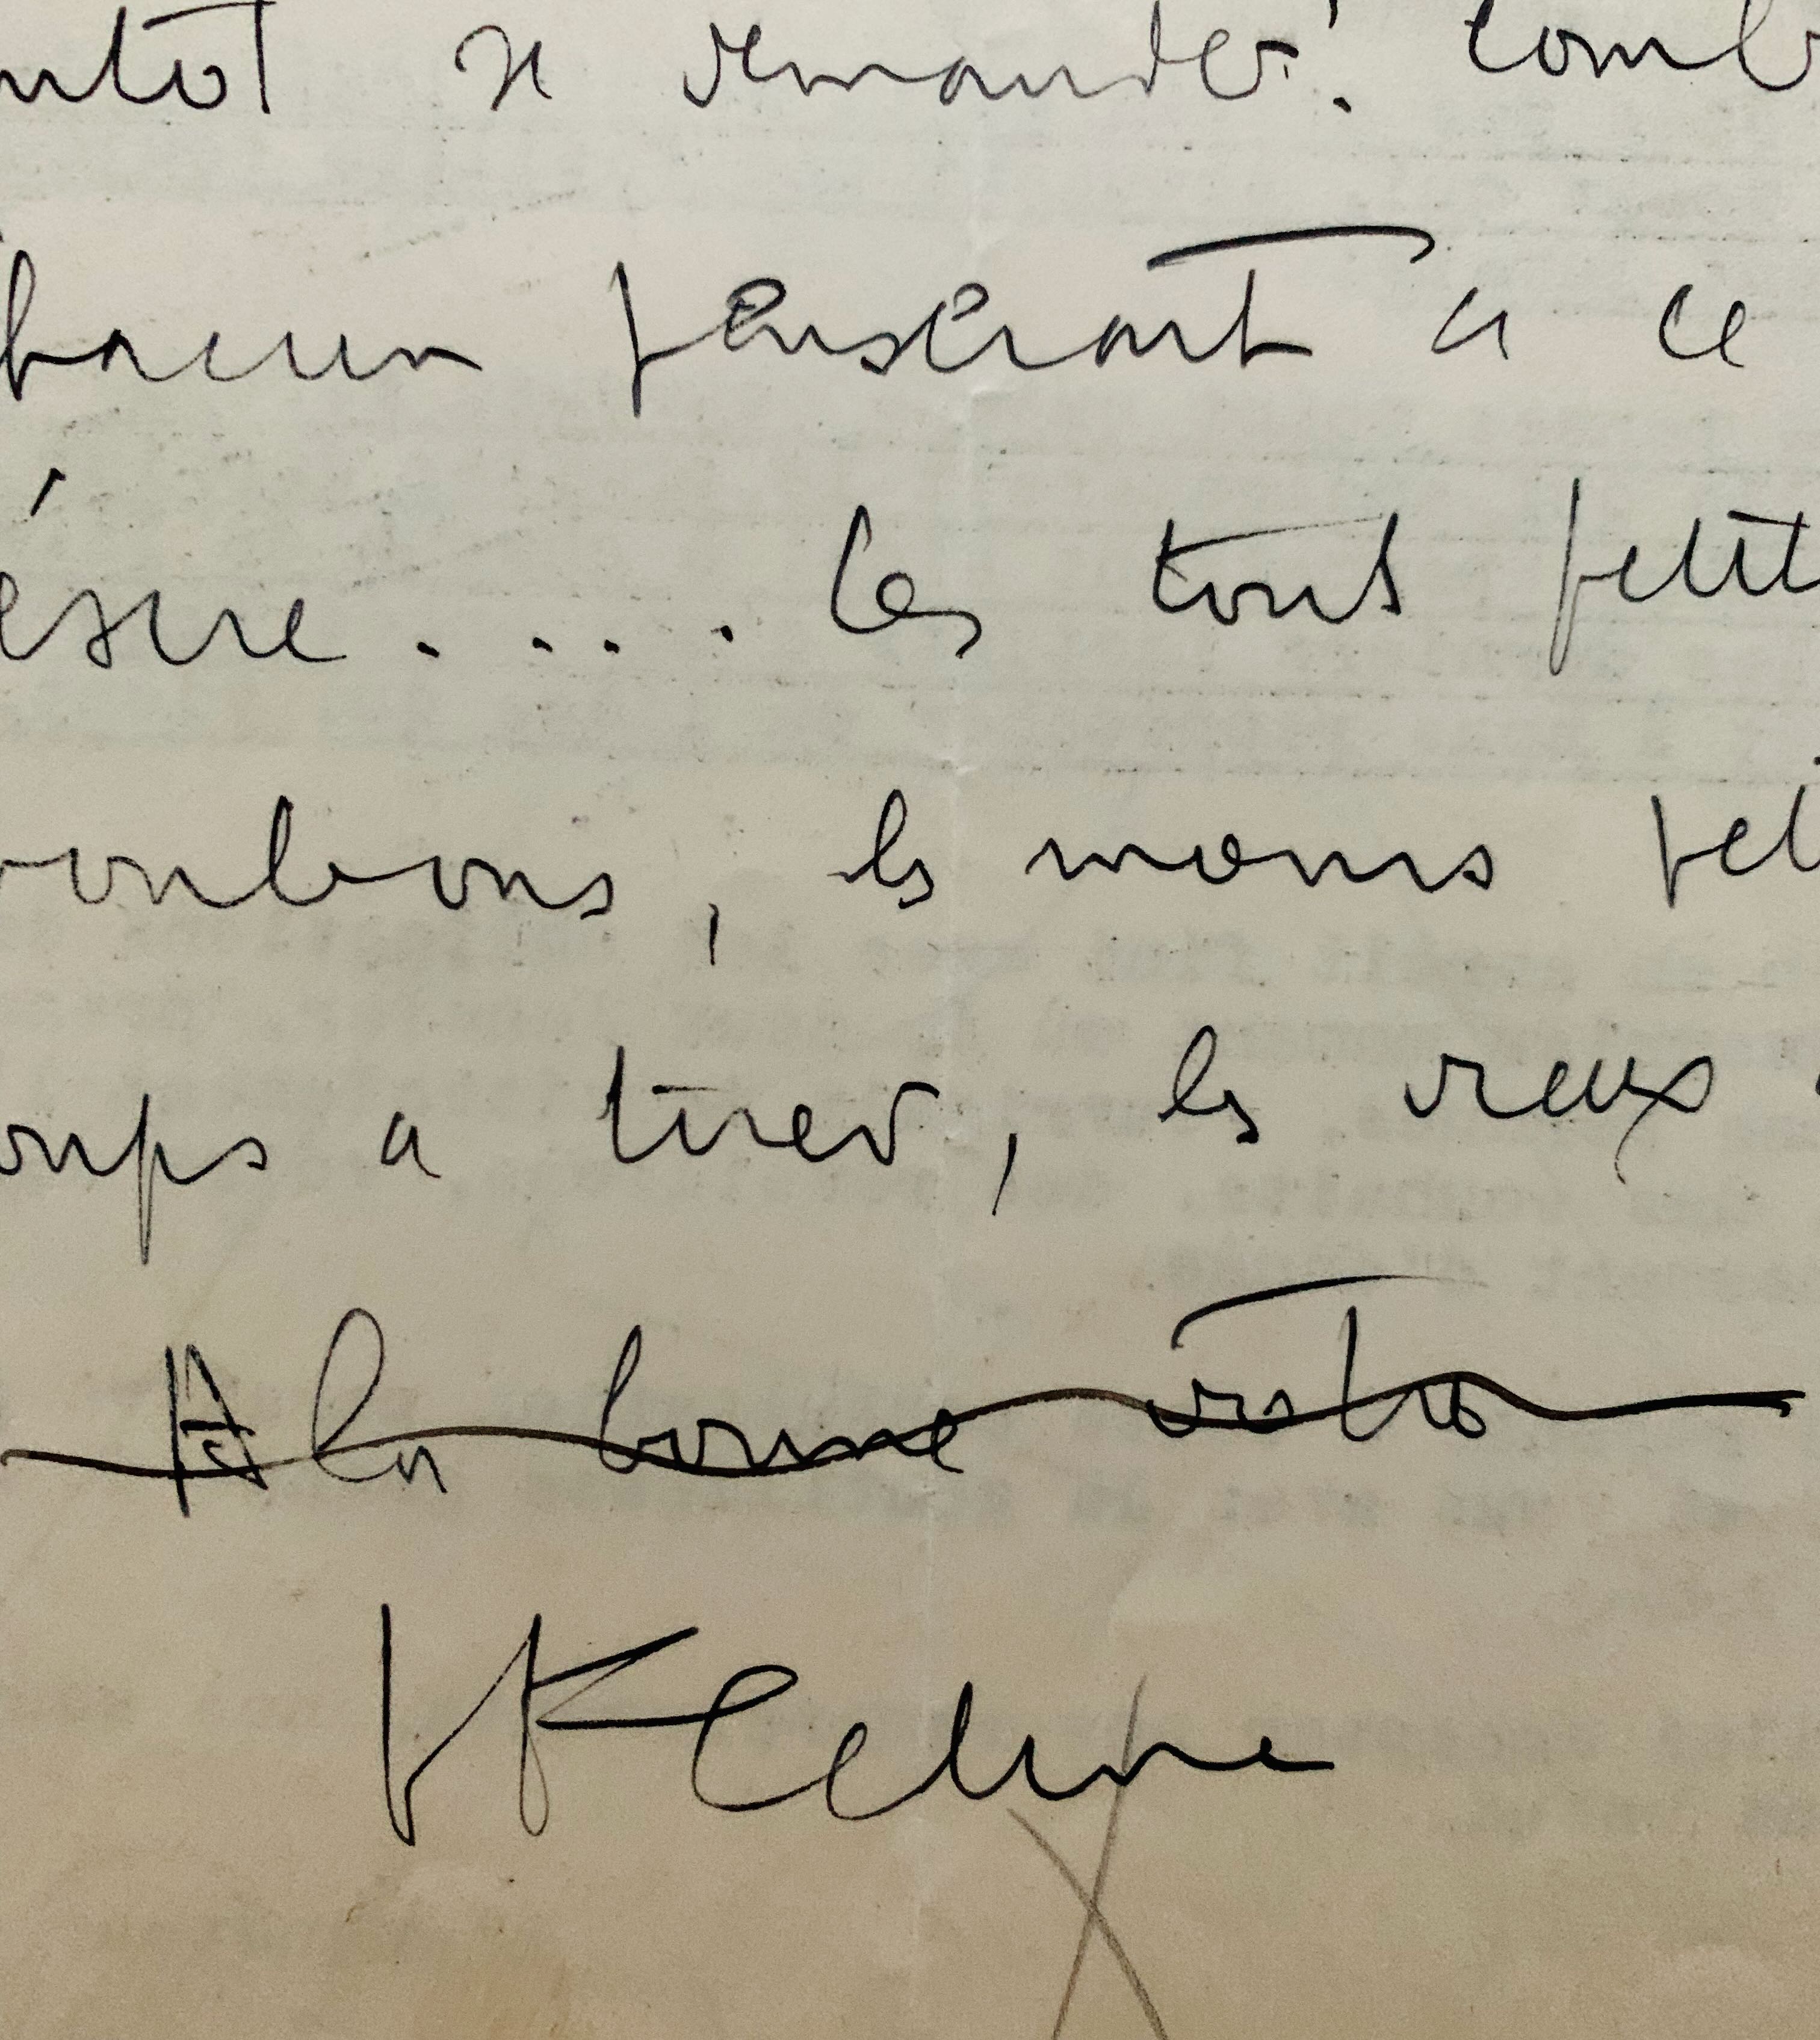 ntôt se demander! Comb
hacun pensant a ce
ésire.... les touts petit
onbons, les moins peti
oups a tirer, les vieux
A la bonne votre
LF Celine